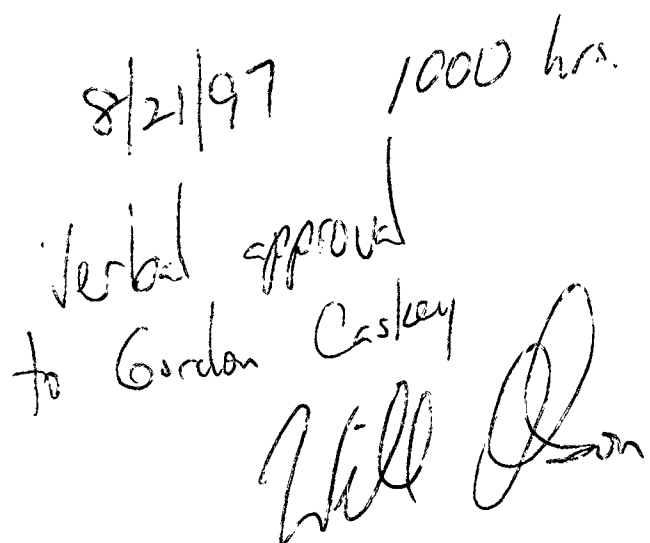 8/21/97 1000 hrs.
Verbal approval
to Gordon Caskey
Will Olson